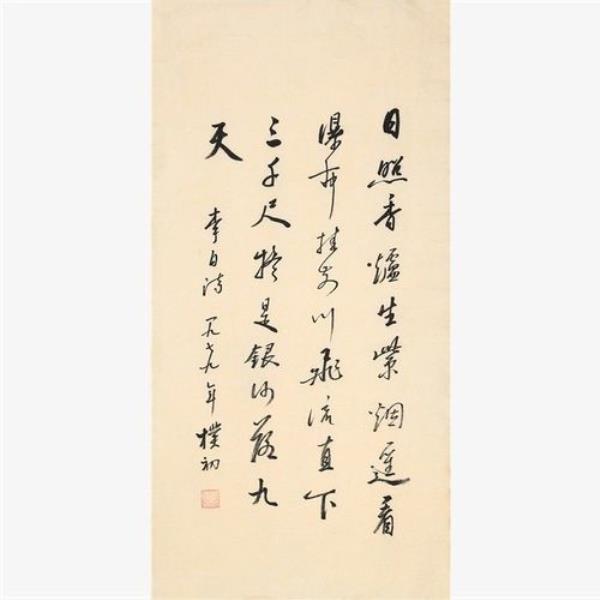 日照香爐生紫烟遙看
瀑布挂前川飛流直下
三千尺疑是銀河落九
天
李白詩 一九七九年 樸初